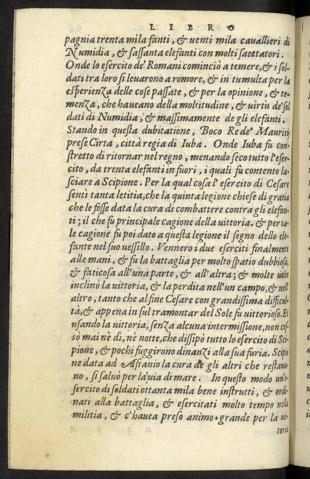 LIBRO
pagnia trenta mila fanti, & uenti mila cauallieri di
Numidia, & sassanta elefanti con molti saettatori.
Onde lo esercito de' Romani cominciò a temere, & i sol-
dati tra loro si leuarono a romore, & in tumulto per la
esperienza delle cose passate, & per la openione, & te-
menza, che haueano della moltitudine, & uirtù de' sol
dati di Numidia, & massimamente de gli elefanti.
Stando in questa dubitatione, Boco Re de' Maurisij
prese Cirta, città regia di Iuba. Onde Iuba fu con-
stretto di ritornar nel regno, menando seco tutto l'eser-
cito, da trenta elefanti in fuori, i quali fu contento la-
sciare a Scipione. Per la qual cosa l'esercito di Cesare
sentì tanta letitia, che la quinta legione chiese di gratia
che le fusse data la cura di combattere contra gli elefan-
ti; il che fu principale cagione della uittoria. & per ta-
le cagione fu poi dato a questa legione il segno dello ele-
fante nel suo uessillo. Vennero i due eserciti finalmente
alle mani, & fu la battaglia per molto spatio dubbiosa,
& faticosa all'una parte, & all'altra; & molte uolte
inclinò la uittoria, & la perdita nell'un campo, & nel
altro, tanto che al fine Cesare con grandissima difficul-
tà, & appena in sul tramontar del Sole fu uittorioso. Et
usando la uittoria, senza alcuna intermissione, non ces-
sò mai nè dì, nè notte, che dissipò tutto lo esercito di Sci-
pione, & pochi fuggirono dinanzi alla sua furia. Scipio
ne data ad Afranio la cura de gli altri che restaua-
no, si saluò per la uia di mare. In questo modo un'e-
sercito di soldati ottanta mila bene instrutti, & ordi-
nati alla battaglia, & esercitati molto tempo nella
militia, & c'hauea preso animo grande per la uit-
toria